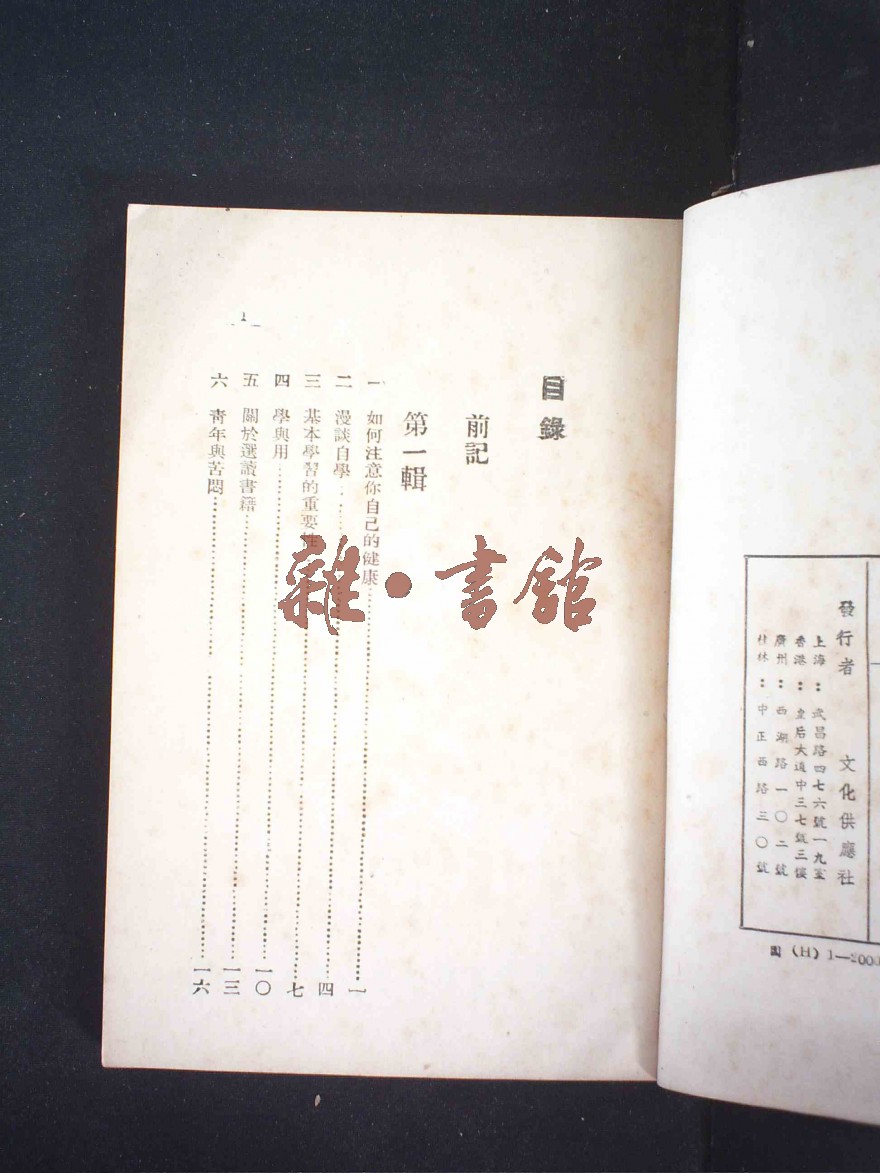 發行者　文化供應社
上海：武昌路四七六號一九室
香港：皇后大道中三七號三樓
廣州：西湖路一〇二號
桂林：中正西路三〇號
(H) 1—2000
目錄
前記
第一輯
一　如何注意你自己的健康……一
二　漫談自學……四
三　基本學習的重要性……七
四　學與用……一〇
五　關於選讀書籍……一三
六　靑年與苦悶……一六
1
雜・書館